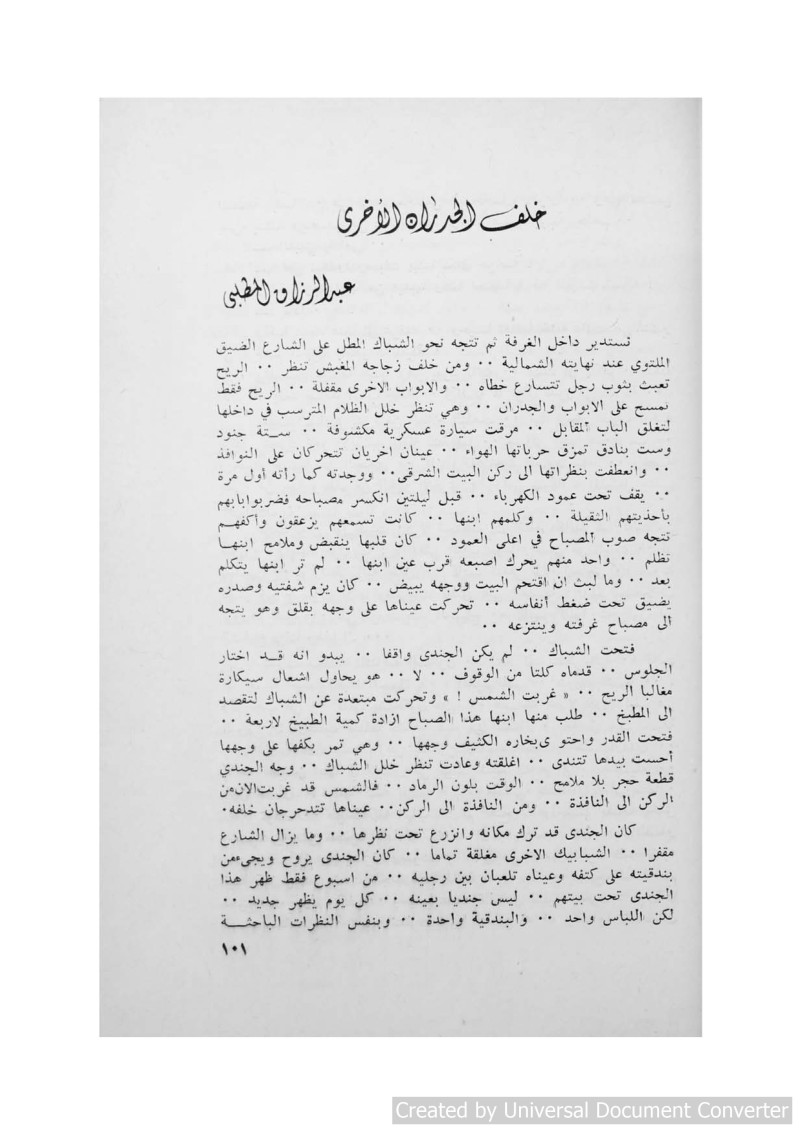 خلف الجدران الأخرى
عبد الرزاق المطلبي
تستدير داخل الغرفة ثم تتجه نحو الشباك المطل على الشارع الضيق
الملتوي عند نهايته الشمالية ٠٠ ومن خلف زجاجه المغبش تنظر ٠٠ الريح
تعبث بثوب رجل تتسارع خطاه ٠٠ والابواب الاخرى مقفلة ٠٠ الريح فقط
تمسح على الابواب والجدران ٠٠ وهي تنظر خلل الظلام المترسب في داخلها
لتغلق الباب المقابل ٠٠ مرقت سيارة عسكرية مكشوفة ٠٠ ستة جنود
وست بنادق تمزق حرباتها الهواء ٠٠ عينان اخريان تتحركان على النوافذ
٠٠ وانعطفت بنظراتها الى ركن البيت الشرقي٠٠ ووجدته كما رأته أول مرة
٠٠ يقف تحت عمود الكهرباء ٠٠ قبل ليلتين انكسر مصباحه فضربوابابهم
بأحذيتهم الثقيلة ٠٠ وكلمهم ابنها ٠٠ كانت تسمعهم يزعقون وأكفهم
تتجه صوب المصباح في اعلى العمود ٠٠ كان قلبها ينقبض وملامح ابنها
تظلم ٠٠ واحد منهم يحرك اصبعه قرب عين ابنها ٠٠ لم تر ابنها يتكلم
بعد ٠٠ وما لبث ان اقتحم البيت ووجهه يبيض ٠٠ كان يزم شفتيه وصدره
يضيق تحت ضغط أنفاسه ٠٠ تحركت عيناها على وجهه بقلق وهو يتجه
الى مصباح غرفته وينتزعه ٠٠
فتحت الشباك ٠٠ لم يكن الجندى واقفا ٠٠ يبدو انه قد اختار
الجلوس ٠٠ قدماه كلتا من الوقوف ٠٠ لا ٠٠ هو يحاول اشعال سيكارة
مغالبا الريح ٠٠ « غربت الشمس ! » وتحركت مبتعدة عن الشباك لتقصد
الى المطبخ ٠٠ طلب منها ابنها هذا الصباح ازادة كمية الطبيخ لاربعة ٠٠
فتحت القدر واحتو ىبخاره الكثيف وجهها ٠٠ وهي تمر بكفها على وجهها
أحست بيدها تتندى ٠٠ اغلقته وعادت تنظر خلل الشباك ٠٠ وجه الجندي
قطعة حجر بلا ملامح ٠٠ الوقت بلون الرماد ٠٠ فالشمس قد غربت‌الان‌من
الركن الى النافذة ٠٠ ومن النافذة الى الركن٠٠ عيناها تتدحرجان خلفه٠
كان الجندى قد ترك مكانه وانزرع تحت نظرها ٠٠ وما يزال الشارع
مقفرا ٠٠ الشبابيك الاخرى مغلقة تماما ٠٠ كان الجندى يروح ويجيء‌من
بندقيته على كتفه وعيناه تلعبان بين رجليه ٠٠ من اسبوع فقط ظهر هذا
الجندى تحت بيتهم ٠٠ ليس جنديا بعينه ٠٠ كل يوم يظهر جديد ٠٠
لكن اللباس واحد ٠٠ والبندقية واحدة ٠٠ وبنفس النظرات الباحثة
١٠١
Created by Universal Document Converter